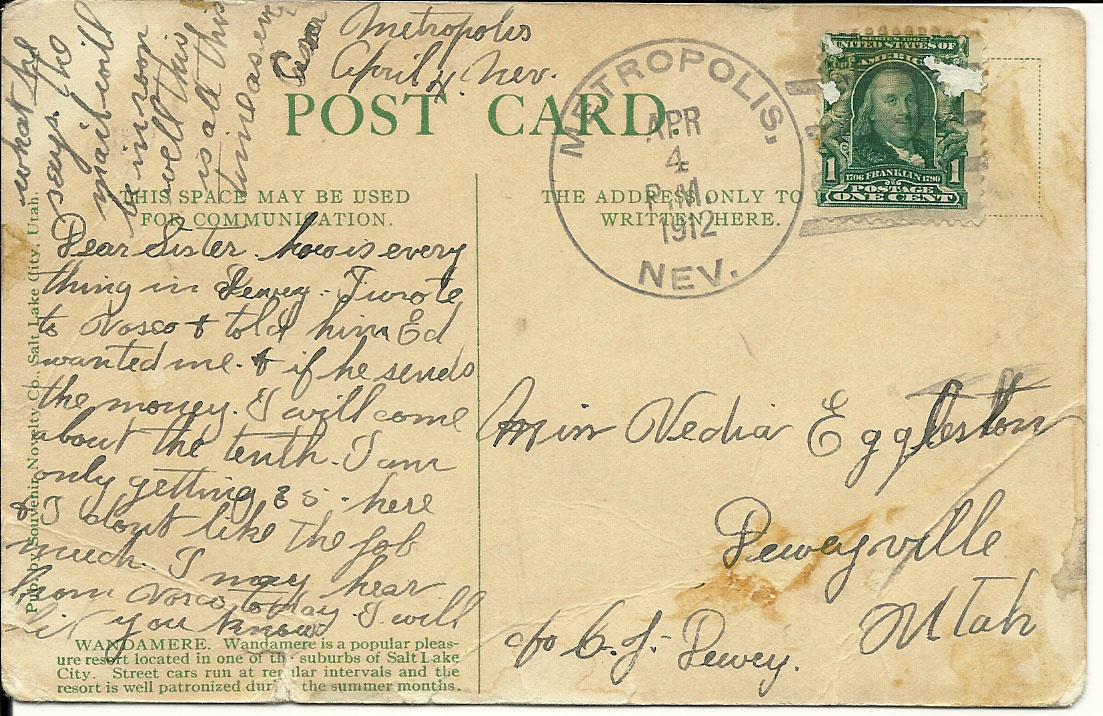 Metropolis
April 4. Nev.
POST CARD.
METROPOLIS,
APR
4
P.M.
1912
NEV.
UNITED STATES OF
AMERICA
1 1
1706 FRANKLIN 1790
POSTAGE
ONE CENT
THIS SPACE MAY BE USED
FOR COMMUNICATION.
THE ADDRESS ONLY TO
WRITTEN HERE.
Dear Sister. how is every
thing in Dewey. I wrote
to Vosco & told him Ed
wanted me. & if he sends
the money. I will come
about the tenth. I am
only getting 35. here
& I dont like the job
much. I may hear
from Vosco today. I will
let you know
what he
says. The
mail will
be in soon
well this
is all this
time as ever
Miss Vedia Eggleston
Deweyville
Utah
c/o C. J. Dewey.
Pub. by Souvenir Novelty Co., Salt Lake City, Utah.
WANDAMERE. Wandamere is a popular pleas-
ure resort located in one of the suburbs of Salt Lake
City. Street cars run at regular intervals and the
resort is well patronized during the summer months.